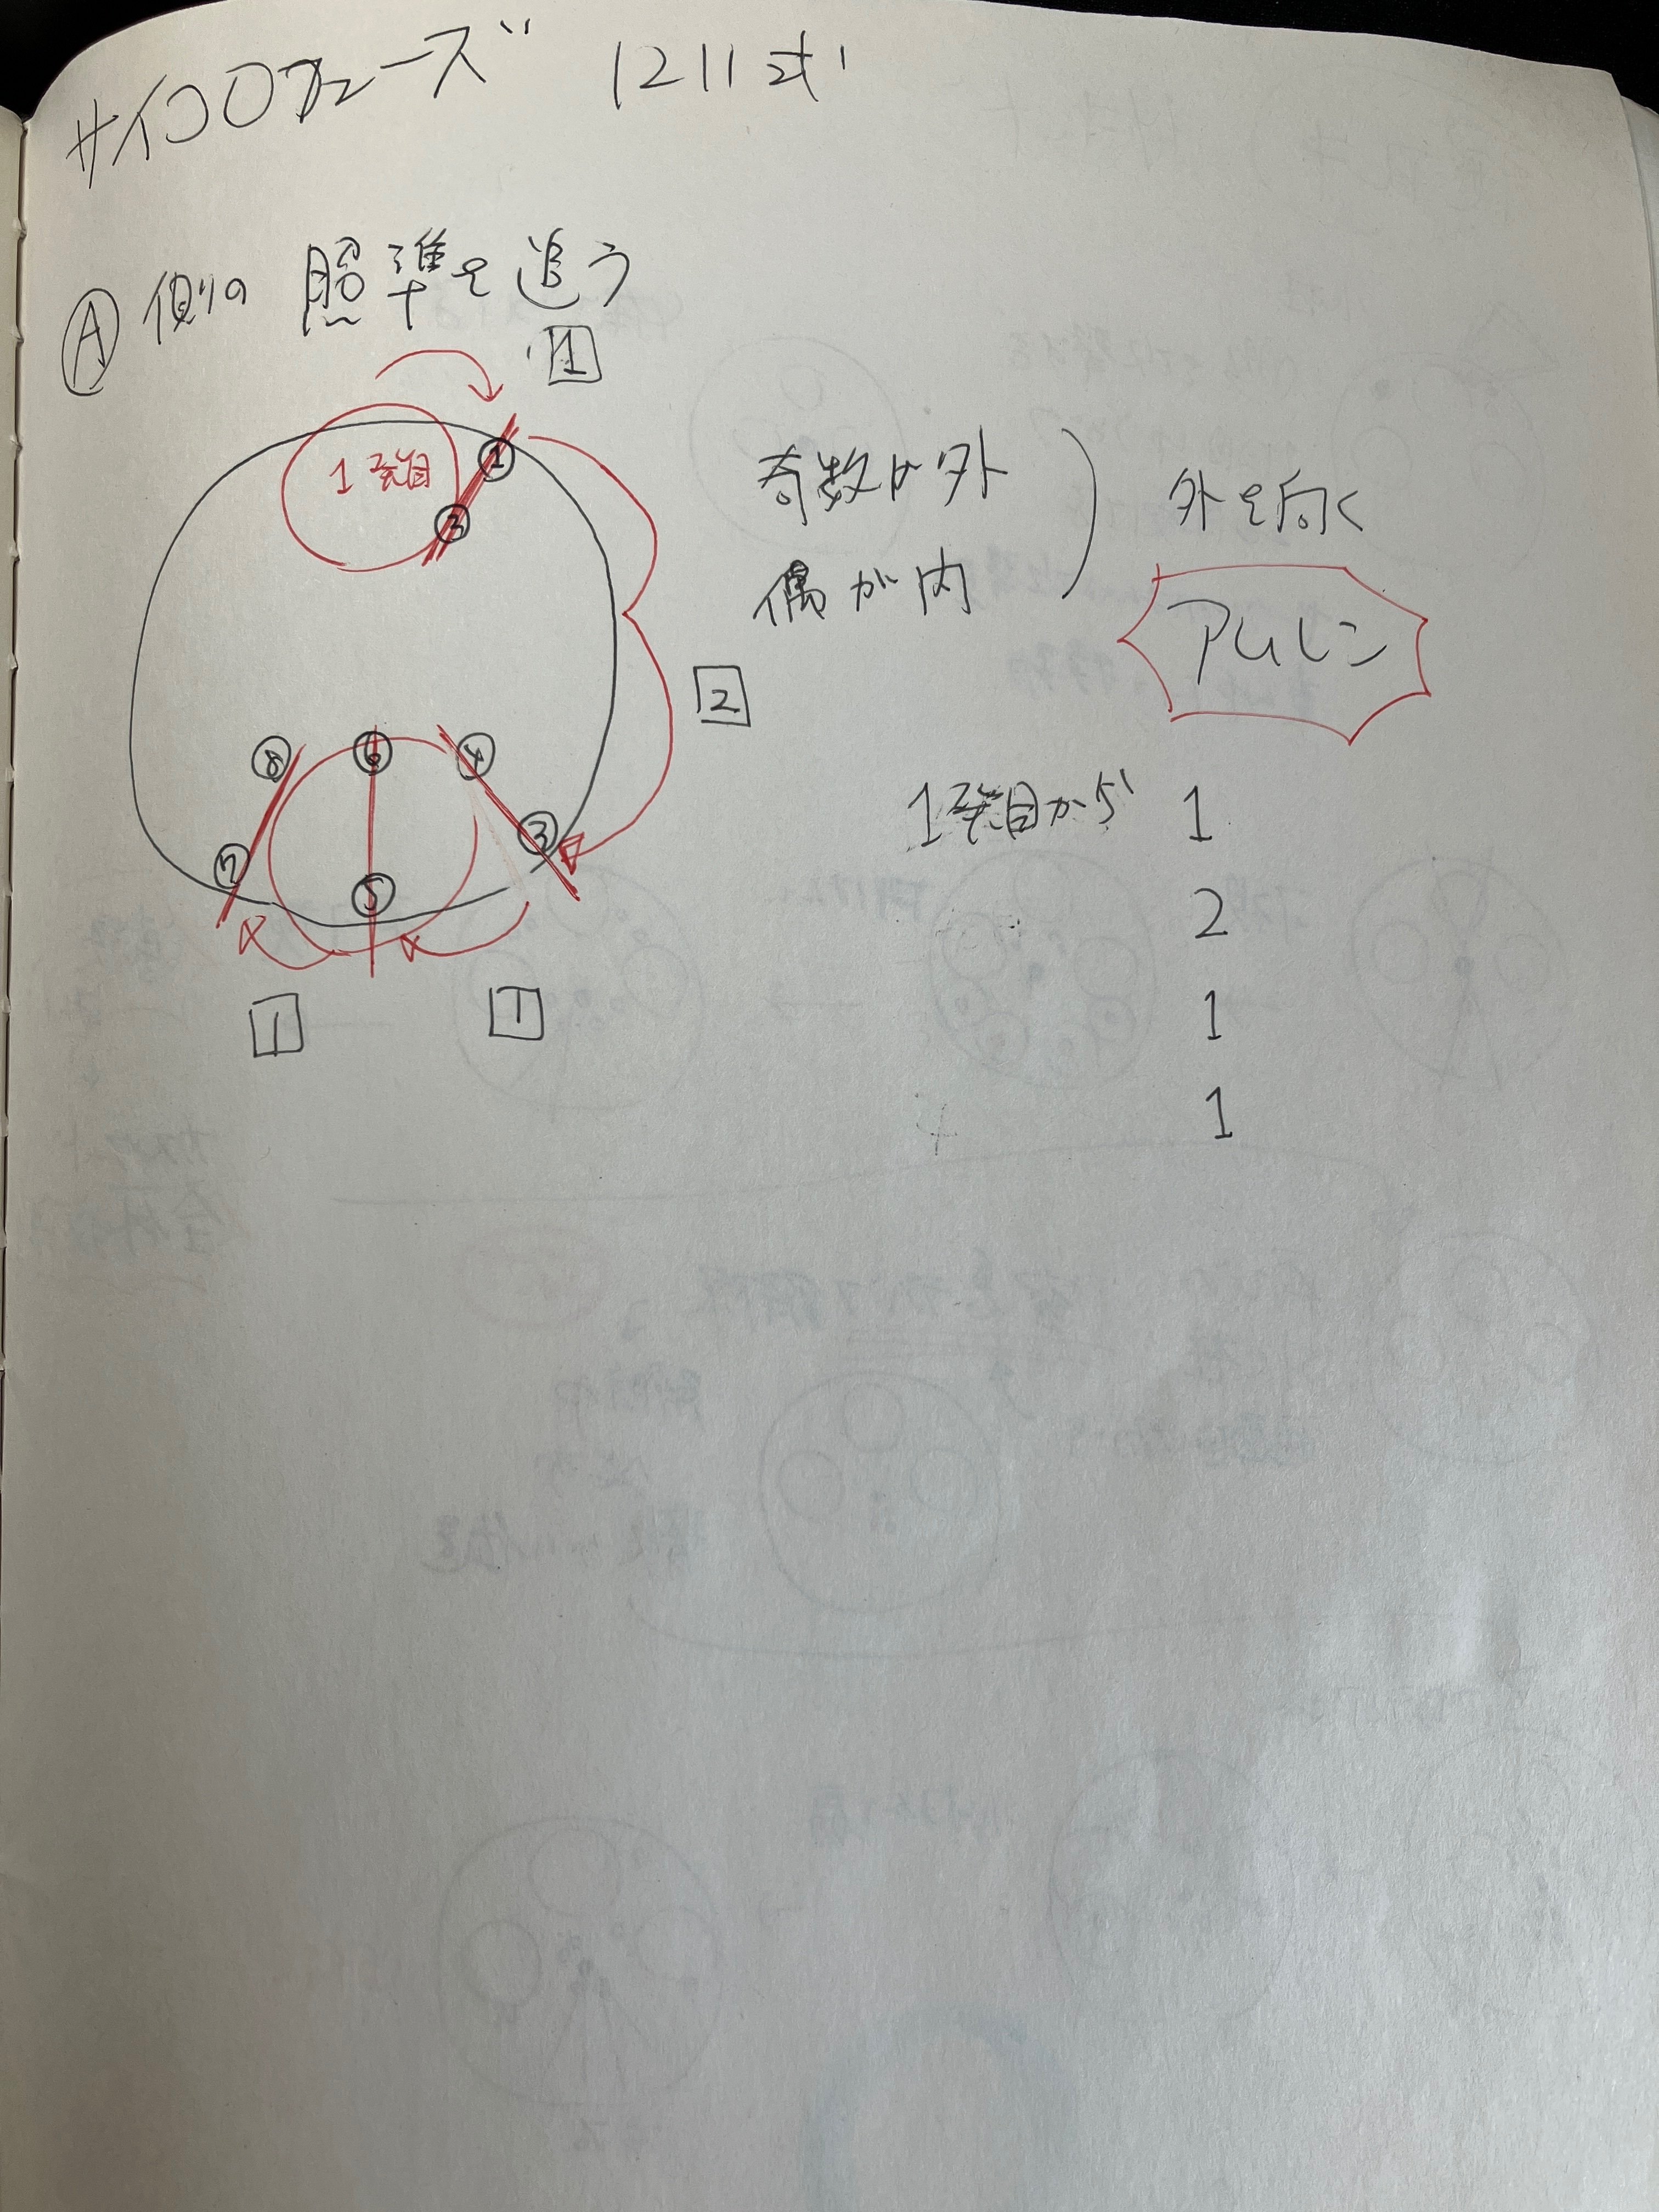 サイコロフェーズ 1211式
Ⓐ側の 照準を追う
1
1発目
①
②
奇数が外
偶が内
外を向く
アムレン
2
⑧ ⑥ ④
⑦ ⑤ ③
1 1
1発目から 1
2
1
1